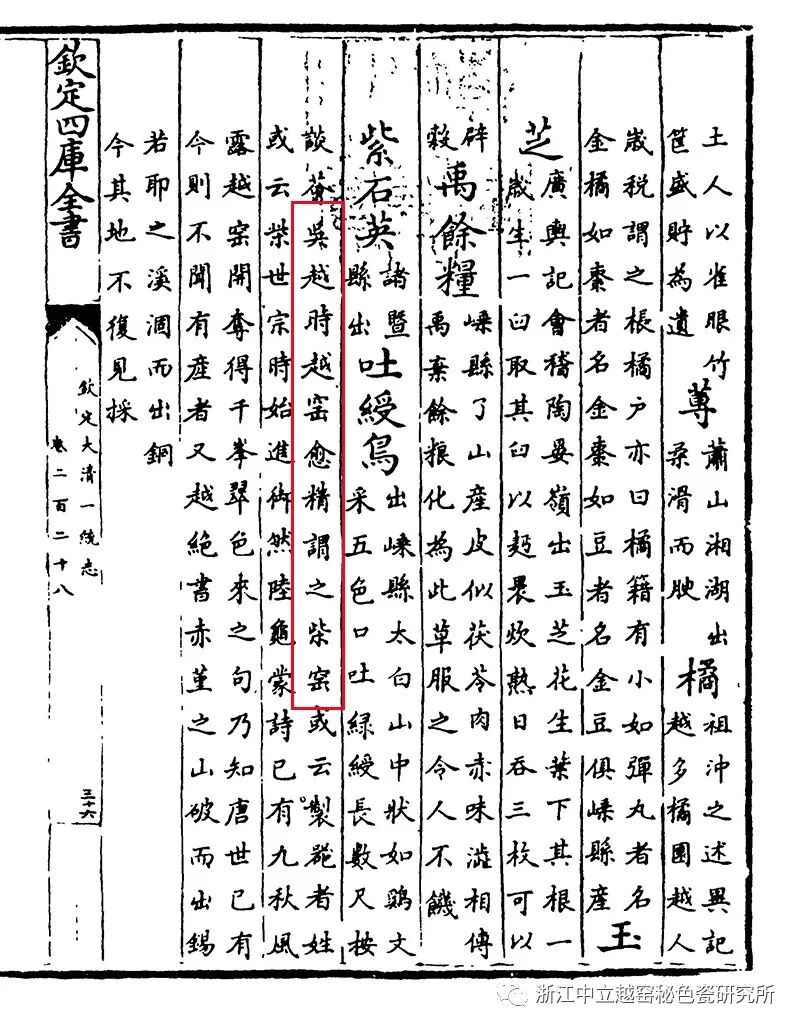 土人以雀眼竹
筐盛貯為遺
蓴
蕭山湘湖出
柔滑而腴
橘
祖沖之述異記
越多橘園越人
歲税謂之橘户亦曰橘籍有小如彈丸者名
金橘如棗者名金棗如豆者名金豆俱嵊縣産
玉
芝
廣輿記會稽陶晏嶺出玉芝花生葉下其根一
歲生一臼取其臼以麫褁炊熟日吞三枚可以
辟
穀
禹餘糧
嵊縣了山産皮似茯苓肉赤味澁相傳
禹棄餘粮化為此草服之令人不饑
紫石英
諸暨
縣出
吐綬鳥
出嵊縣太白山中狀如鷄文
采五色口吐綠綬長數尺按
談薈吳越時越窑愈精謂之柴窑或云製器者姓
或云柴世宗時始進御然陸龜蒙詩已有九秋風
露越窑開奪得千峯翠色來之句乃知唐世已有
今則不聞有産者又越絶書赤堇之山破而出錫
若耶之溪涸而出銅
今其地不復見採
欽定四庫全書
欽定大清一統志
卷二百二十八
三十六
浙江中立越窑秘色瓷研究所